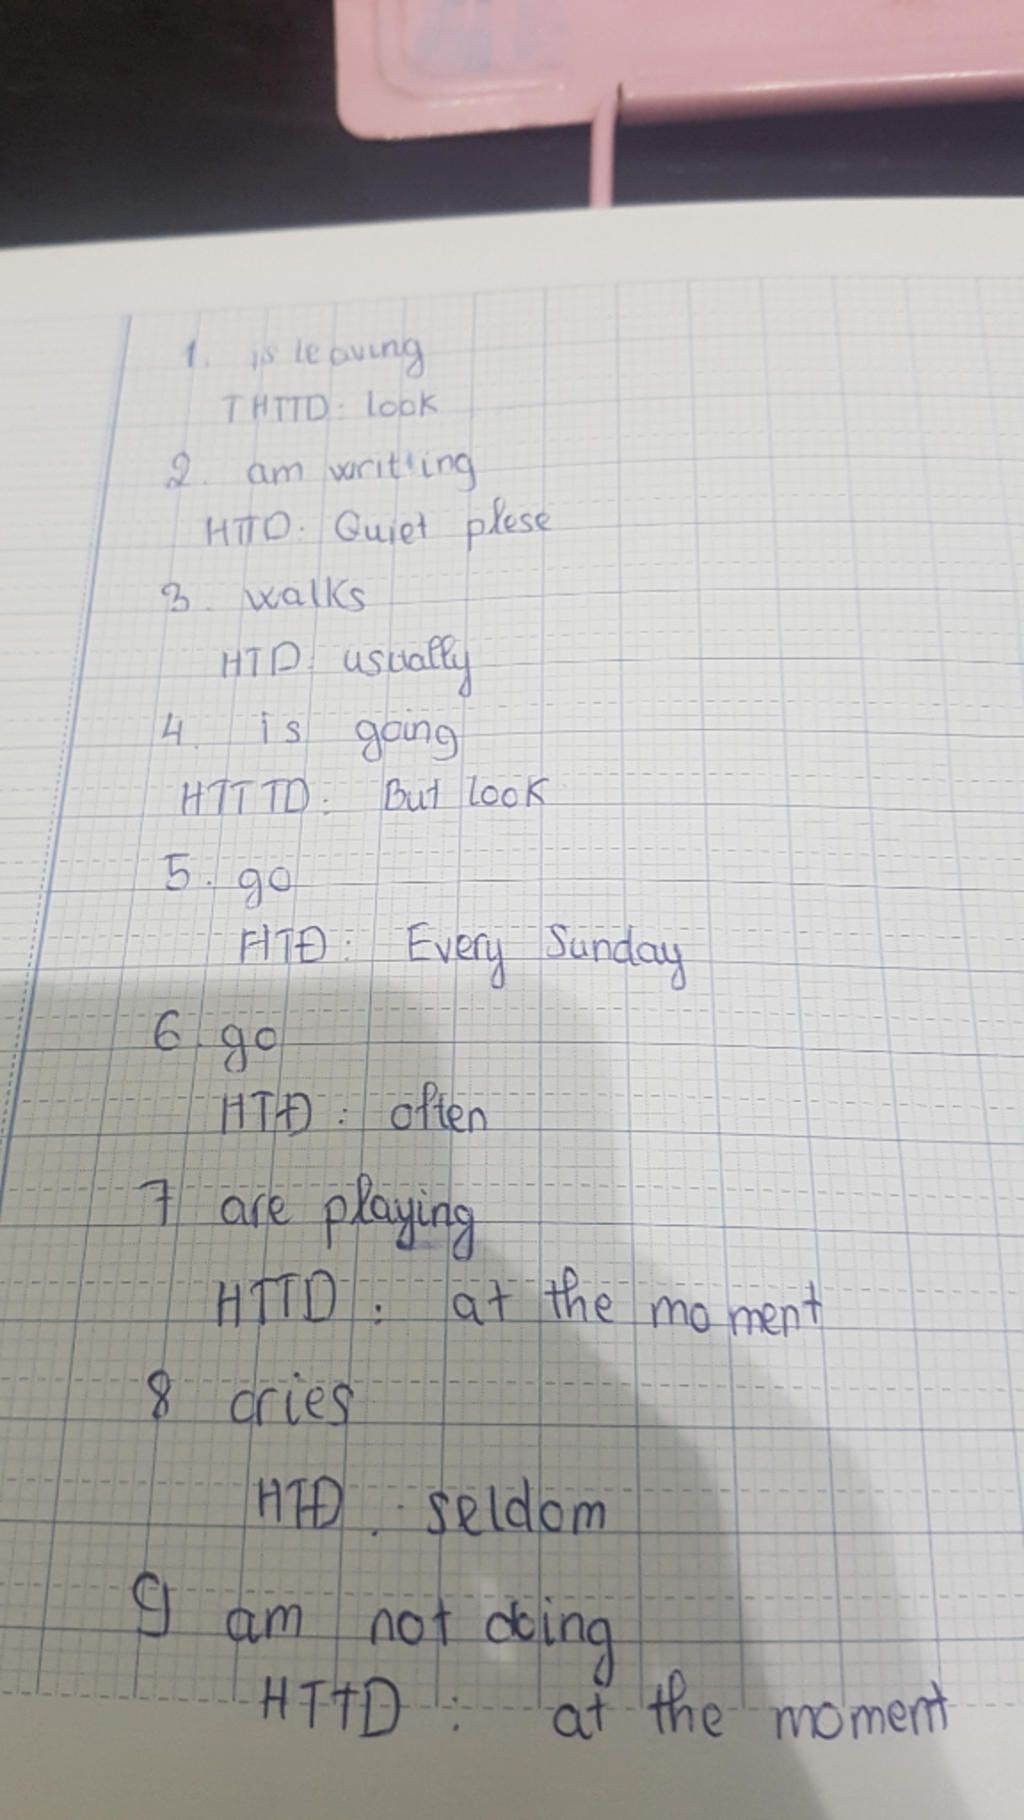 1. is leaving
THTTD: look
2. am writting
HTTD: Quiet plese
3. walks
HTD: usually
4. is going
HTTTD: But look
5. go
HTĐ: Every Sunday
6. go
HTĐ: often
7 are playing
HTTD: at the moment
8 cries
HTĐ: seldom
9 am not doing
HTTD: at the moment